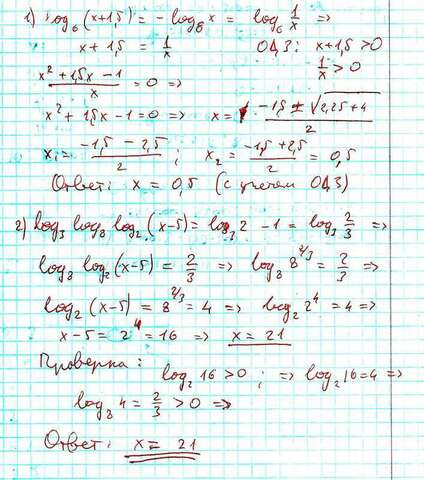 1) log₆(x+1,5) = -log₆ x = log₆ 1/x =>
x + 1,5 = 1/x ОДЗ: x+1,5 > 0
1/x > 0
(x² + 1,5x - 1)/x = 0 =>
x² + 1,5x - 1 = 0 => x = (-1,5 ± √(2,25 + 4))/2
x₁ = (-1,5 - 2,5)/2 ; x₂ = (-1,5 + 2,5)/2 = 0,5
Ответ: x = 0,5 (с учетом ОДЗ)
2) log₃ log₈ log₂ (x-5) = log₃ 2 - 1 = log₃ 2/3 =>
log₈ log₂ (x-5) = 2/3 => log₈ 8^(2/3) = 2/3 =>
log₂ (x-5) = 8^(2/3) = 4 => log₂ 2⁴ = 4 =>
x - 5 = 2⁴ = 16 => x = 21
Проверка:
log₂ 16 > 0 ; => log₂ 16 = 4 =>
log₈ 4 = 2/3 > 0 =>
Ответ: x = 21